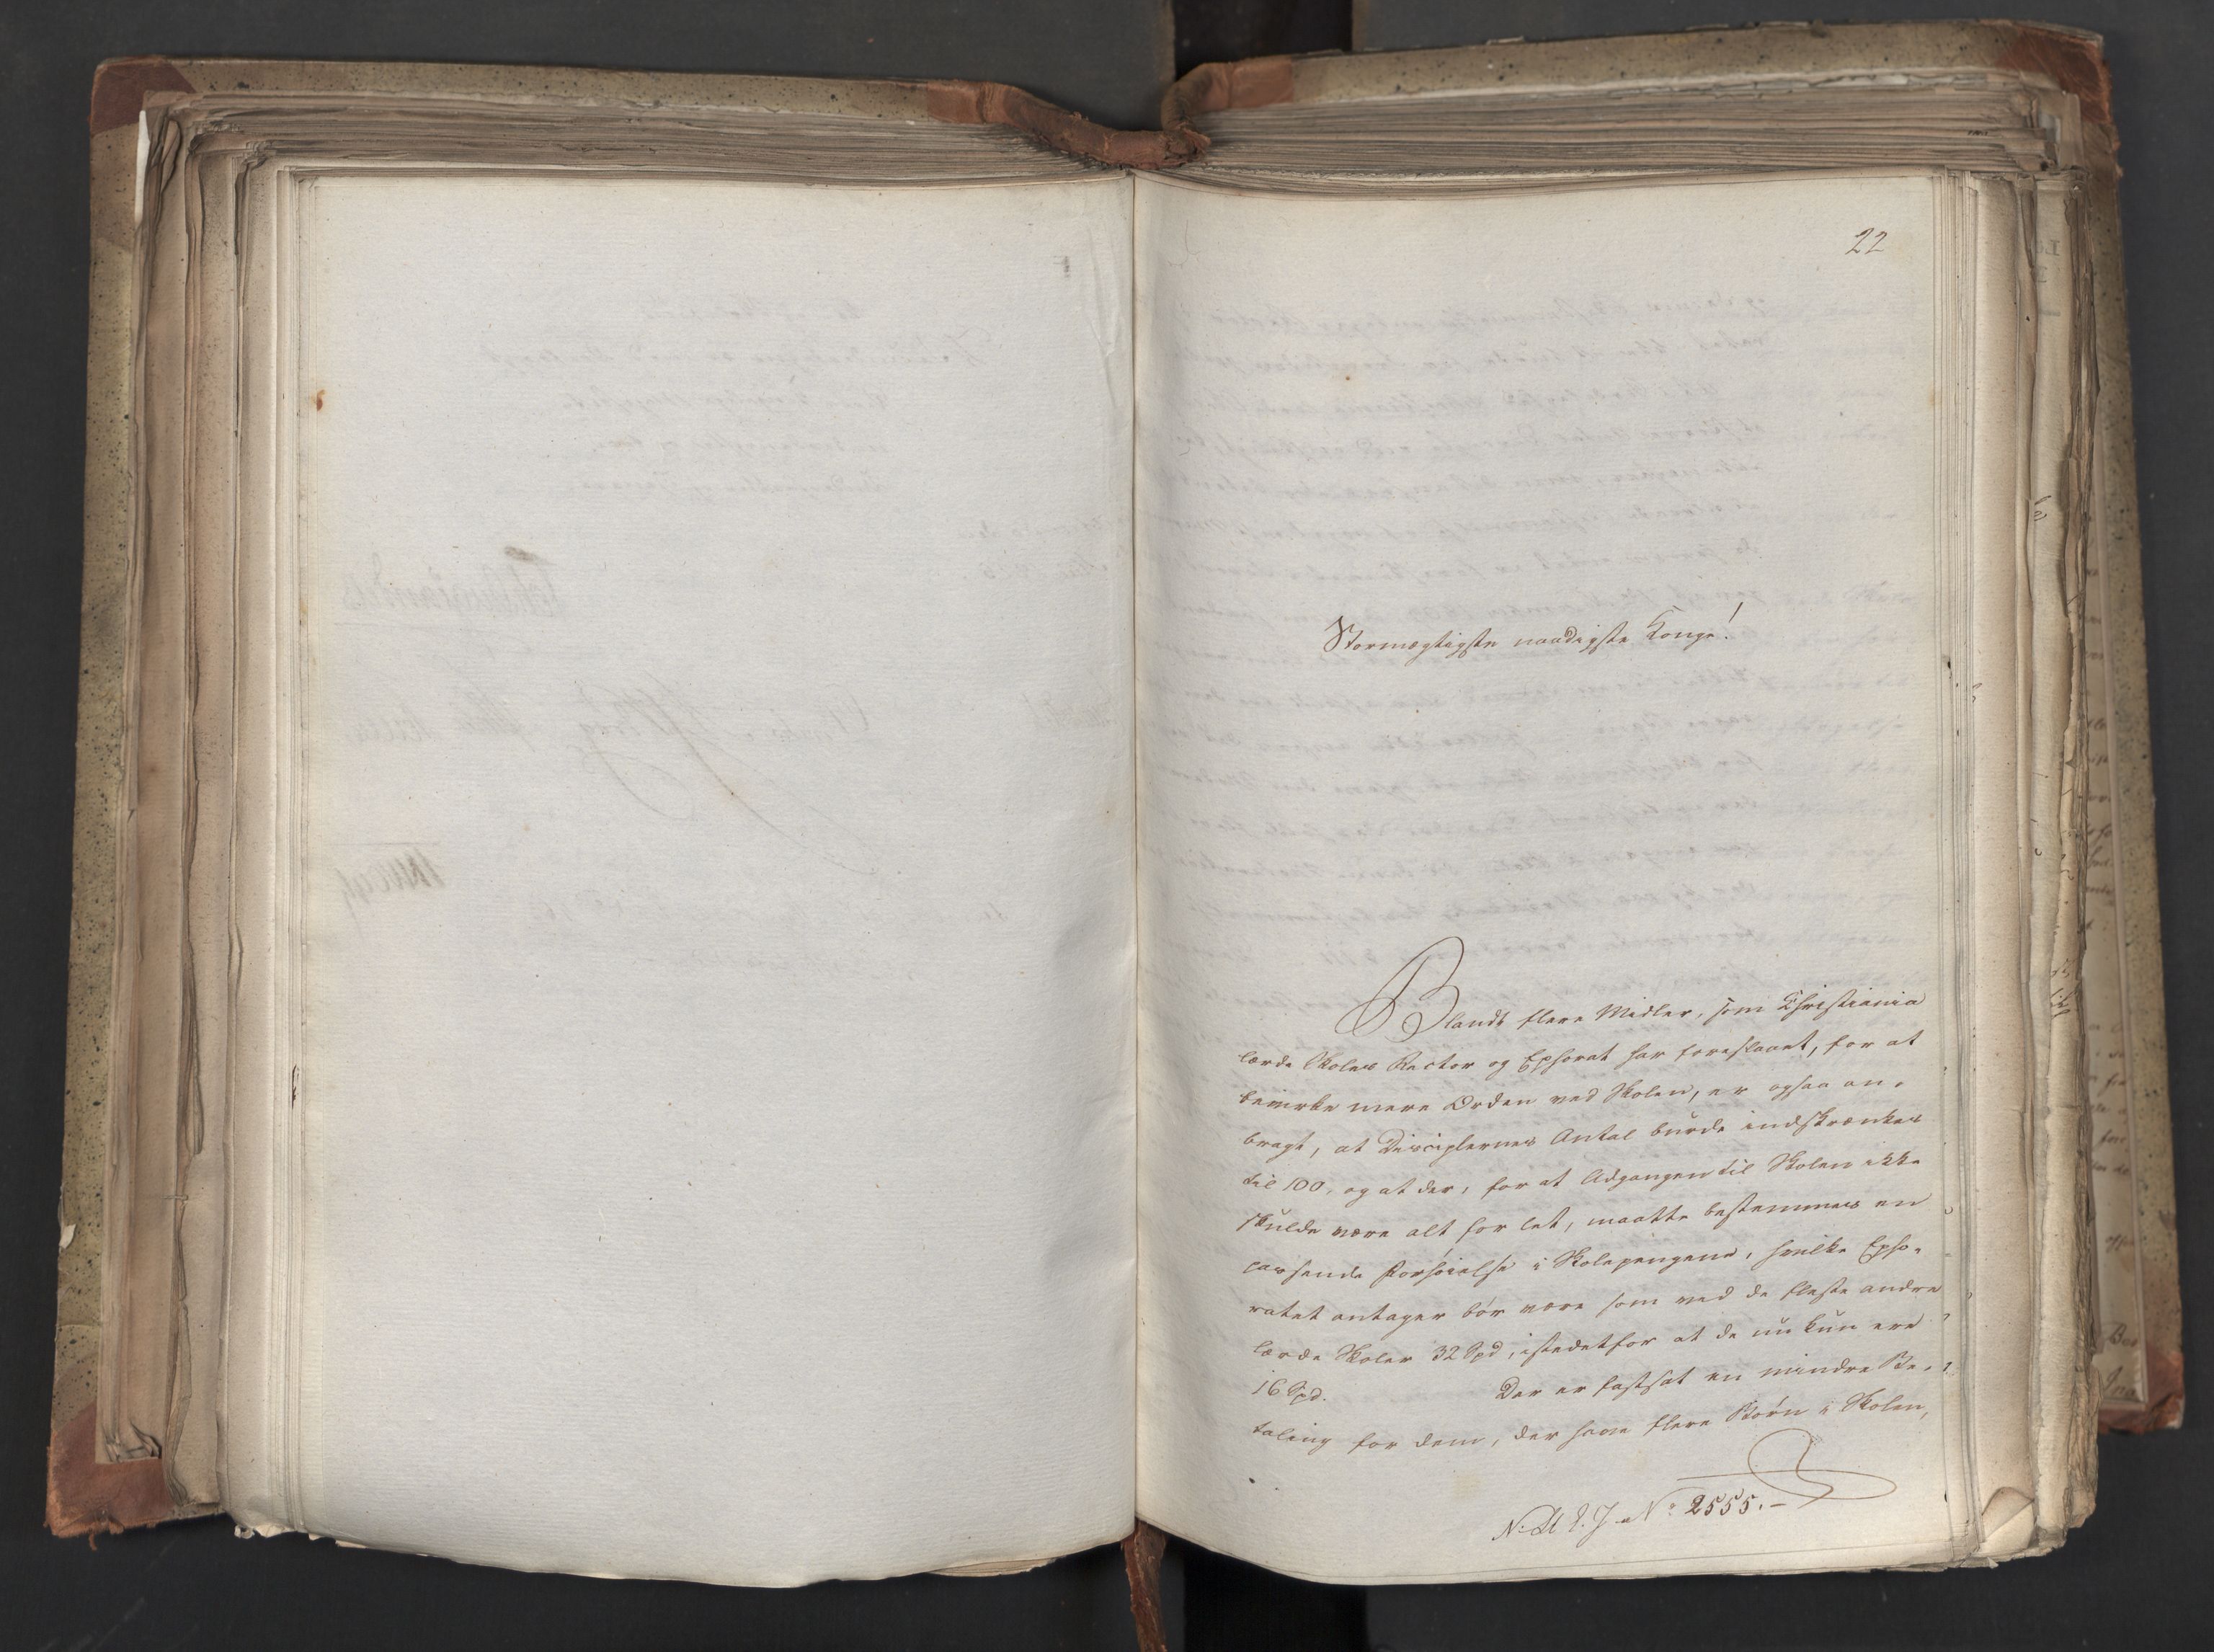 22
Stormægtigste naadigste Konge!
Blandt flere Midler, som Christiania
lærde Skoles Rector og Ephorat har foreslaaet, for at
bevirke mere Orden ved Skolen, er ogsaa an-
bragt, at Disciplernes Antal burde indskrænkes
til 100, og at der, for at Adgangen til Skolen ikke
skulde være alt for let, maatte bestemmes en
passende Forhøielse i Skolepengene, hvilke Epho-
ratet antager bør være som ved de fleste andre
lærde Skoler 32 Spd, istedetfor at de nu kun ere
16 Spd. Der er fastsat en mindre Be-
taling for dem, der have flere Børn i Skolen,
No 2555.-